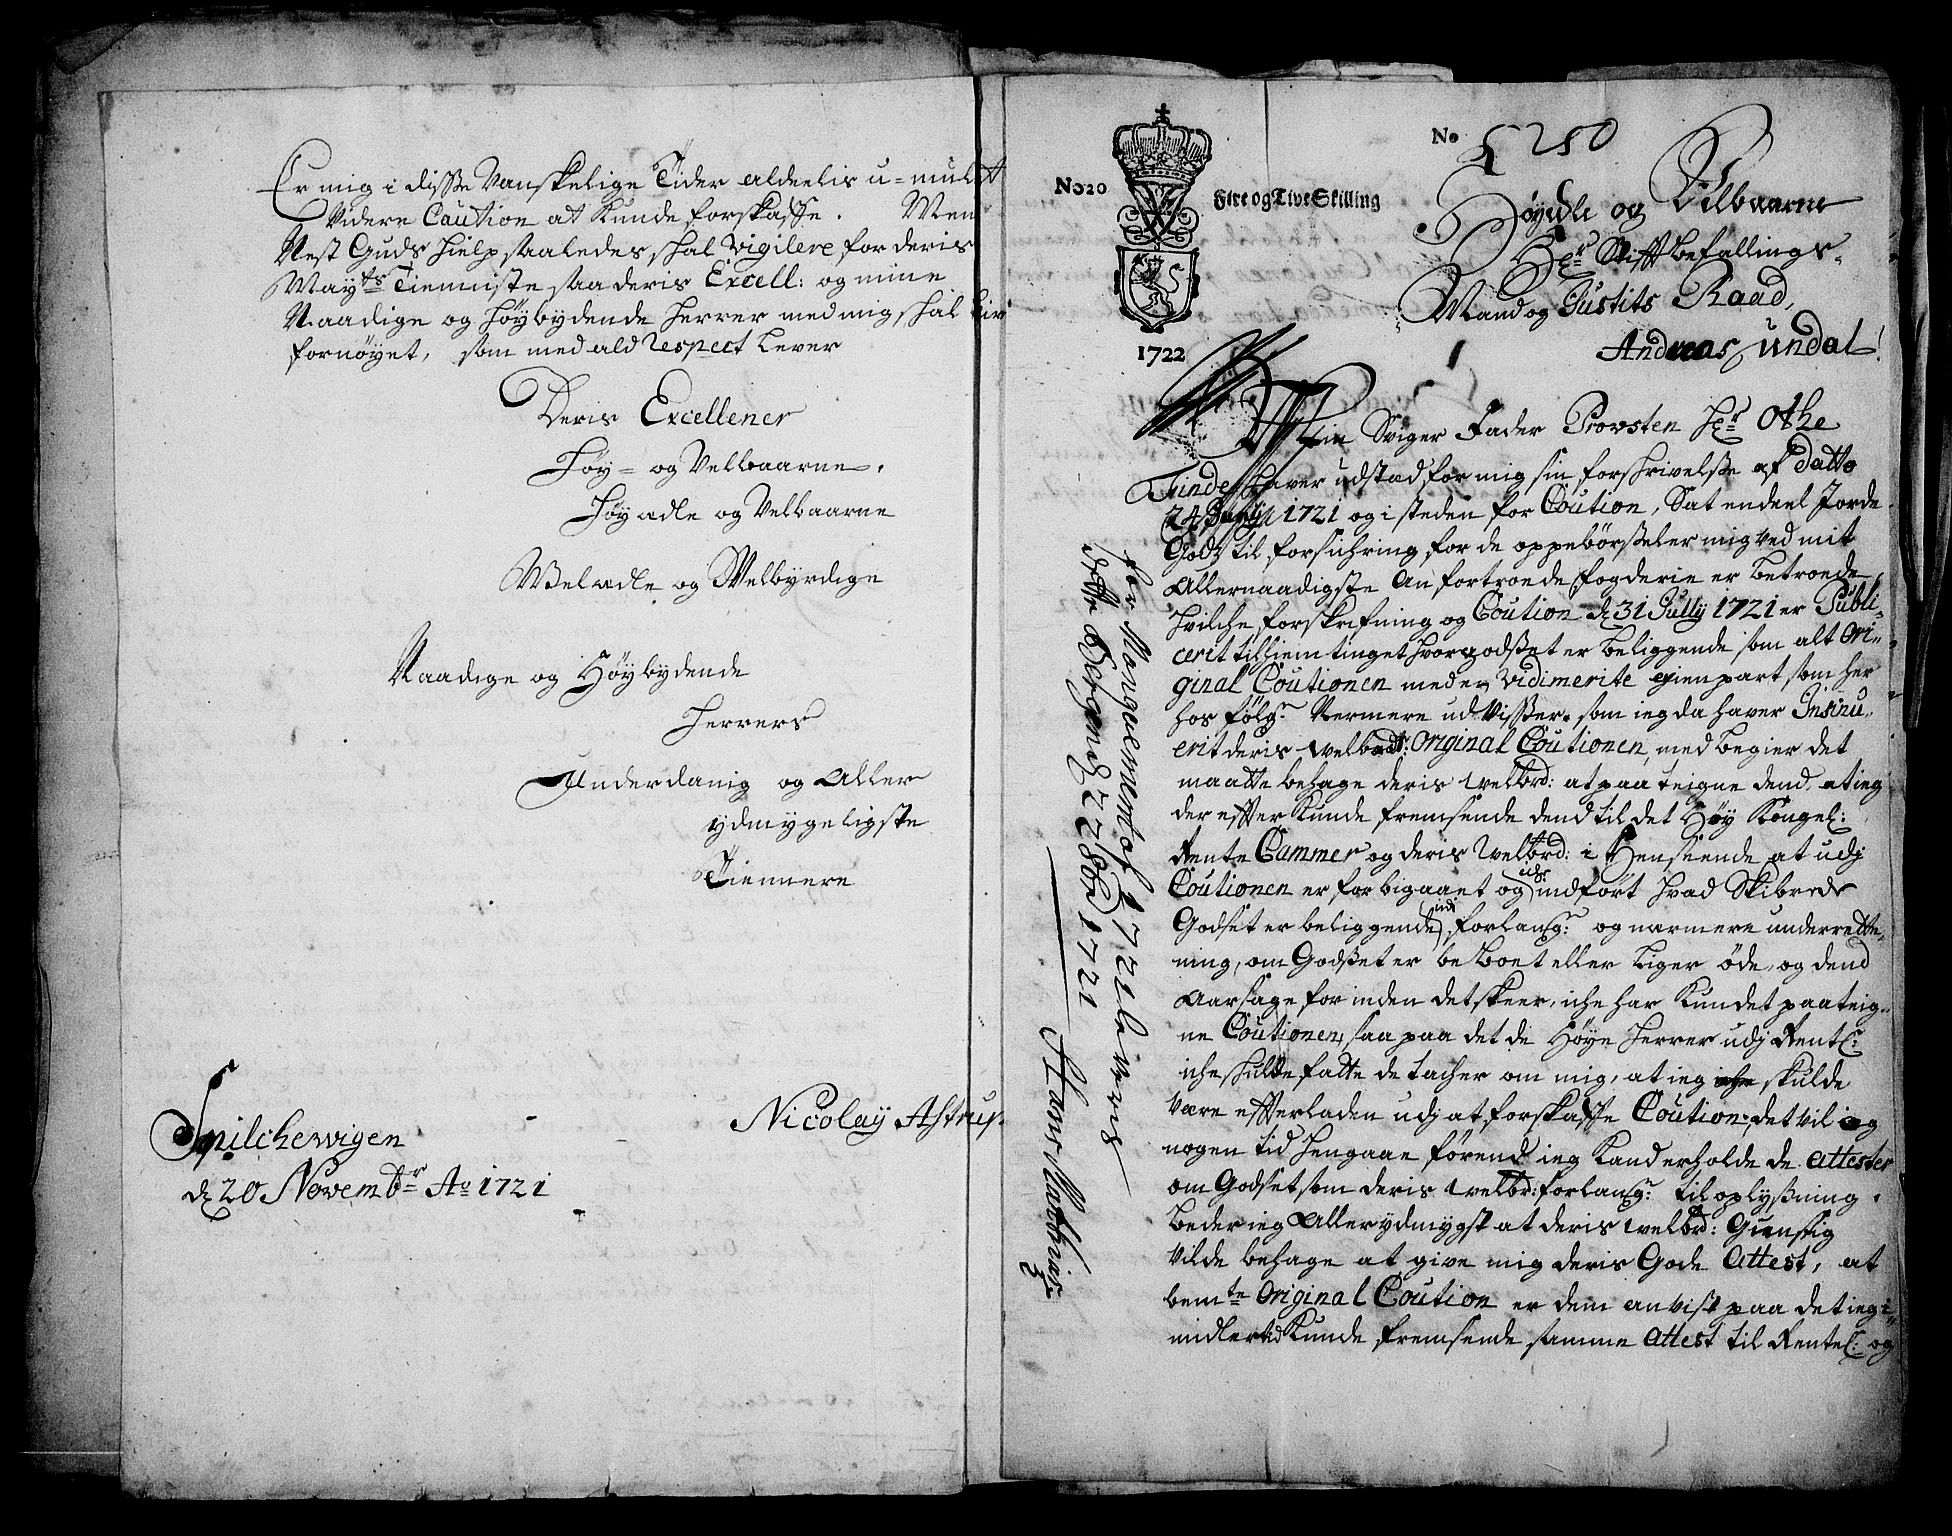 Er mig i disse Vanskelige Tider aldeelis u=muligt
Videre Caution at Kunde forskaffe. Men
Nest Guds hielp saaledes skal vigilere for deris
Mayts Tienniste saa deris Excell: og mine
Naadige og Høybydende Herrer med mig skal
fornøyet, som med ald respect lever
Deris Excellencer
Høy= og Velbaarne.
Høyædle og Velbaarne
Welædle og Welbyrdige
Naadige og Høybydende
Herrers
Underdanig og Aller
ydmygeligste
Tiennere
Nicolaÿ Astrup.
Spilchewigen
d 20 Novembr Ao 1721
No 5250
No 20
Fire og Tive Skilling
1722
Høyædle og Velbaarne
Hr Stifftbefallings-
Mand og Justits Raad,
Andreas Undal!
Min Sviger Fader Provsten Hr Othe
Finde haver udstæd for mig sin forskrivelse af Datto
24 Juny 1721 og i steden for Coution, Sat endeel Jorde
Godz til forsichring for de oppebørseler mig ved mit
Allernaadigste Anfortroede fogderie er betroede,
Hvilche forskrifning og Coution d 31 Jully 1721 er Publi-
cerit til hiemtinget hvor godset er beliggende som alt Ori-
ginal Coutionen med en Vidimerite gienpart som her
hos følg: Nermere udviser. som ieg da haver Insinu-
erit deris welbrd: Original Coutionen, med begier det
maatte behage deris welbrd: at paateigne dend, at ieg
der effter Kunde fremsende dend til det Høy Kongel:
Rente Cammer og deris Welbrd: i Henseende at udj
Coutionen er forbigaaet og icke indført hvad Skibrede
Godset er beliggende udi, forlang: og nærmere underrette-
ning, om Godset er beboet eller liger øde, og dend
Aarsage forinden det skeer, iche har Kundet paateig-
ne Coutionen, saa paa det de Høye Herrer udj Rentec:
iche skulde fatte de tacher om mig, at ieg skulde
være efterladen udj at forskaffe Coution, det vil og
nogen tid hengaae førend ieg Kand erholde de attester
om Godset som deris welbr: forlang: til oplysning.
Beder ieg Allerydmygst at deris welbrd: Gunstig
vilde behage at give mig deris Gode Attest, at
bemte Original Coution er dem anvist paa det ieg i-
midlertid Kunde fremsende samme attest til Rentec: og
for Mangel ment af 1722 leveris
dette Bergen d 22 8br 1721
Hans Mathias